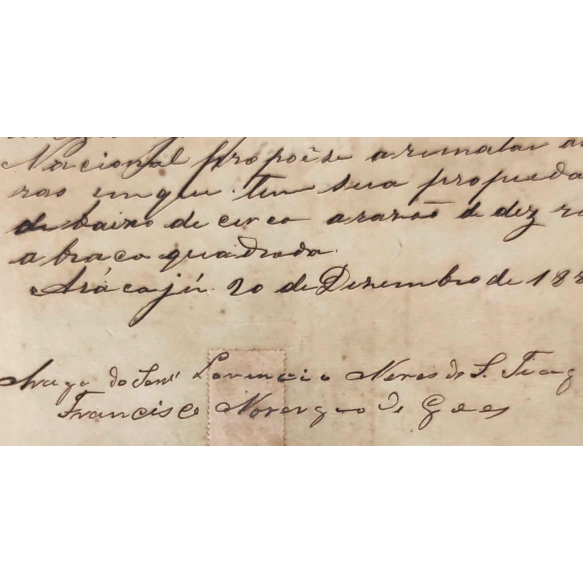 Nacional propoêse arematar a
ras em que tem sua proprieda
de baixo de cerco a razão de dez r
a braca quadrada.
Arácajú 20 de Dezembro de 188
a rogo do Senr Lourencio Neves de S. Tiag
Francisco de Goes